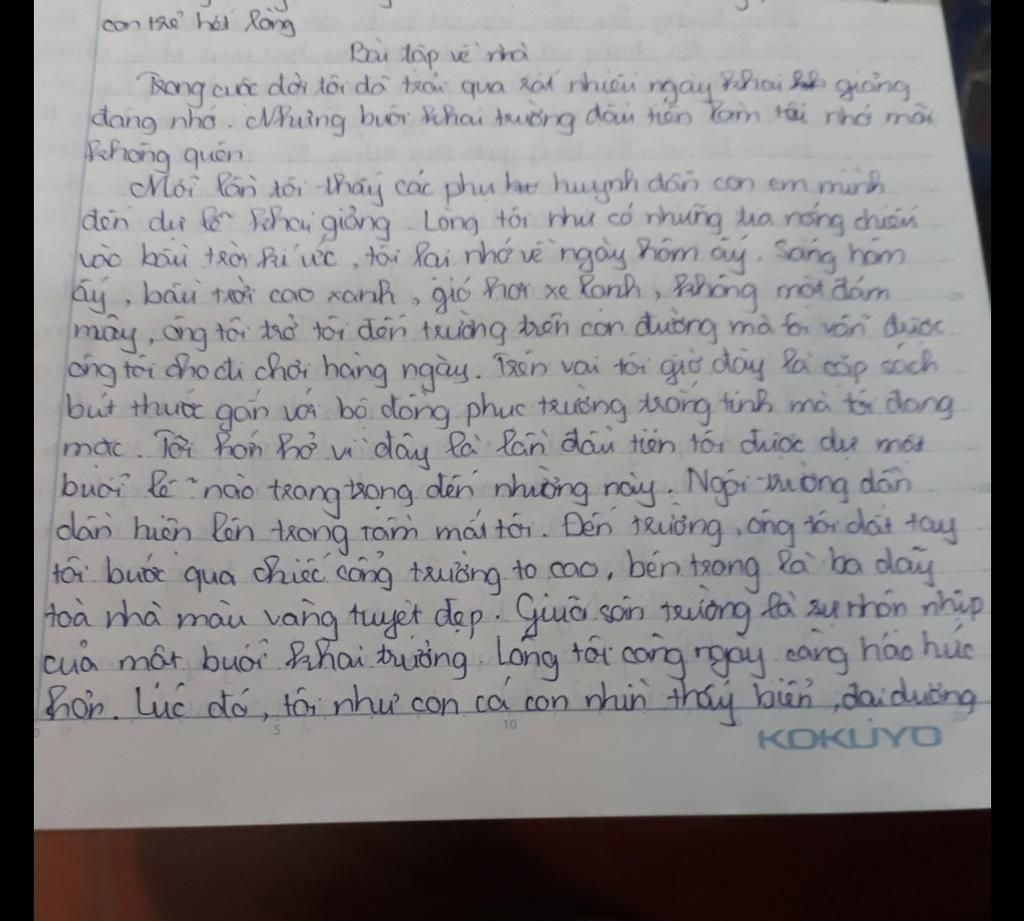 con trẻ hát lòng
Bài tập về nhà
Trong cuộc đời tôi đã trải qua rất nhiều ngày khai giảng
đáng nhớ. Nhưng buổi khai trường đầu tiên làm tôi nhớ mãi
không quên
Mỗi lần tôi thấy các phụ huynh dẫn con em mình
đến dự lễ khai giảng. Lòng tôi như có những tia nắng chiếu
vào bầu trời kí ức, tôi lại nhớ về ngày hôm ấy. Sáng hôm
ấy, bầu trời cao xanh, gió hơi xe lạnh, không một đám
mây, ông tôi trở tôi đến trường trên con đường mà tôi vẫn được
ông tôi cho đi chơi hàng ngày. Trên vai tôi giờ đây là cặp sách
bút thước gắn với bộ đồng phục trường trắng tinh mà tôi đang
mặc. Tôi hớn hở vì đây là lần đầu tiên tôi được dự một
buổi lễ nào trang trọng đến nhường này. Ngôi trường dần
dần hiện lên trong tầm mắt tôi. Đến trường, ông tôi dắt tay
tôi bước qua chiếc cổng trường to cao, bên trong là ba dãy
toà nhà màu vàng tuyệt đẹp. Giữa sân trường là sự nhộn nhịp
của một buổi khai trường. Lòng tôi càng ngày càng háo hức
hơn. Lúc đó, tôi như con cá con nhìn thấy biển, đại dương
5 10
KOKUYO